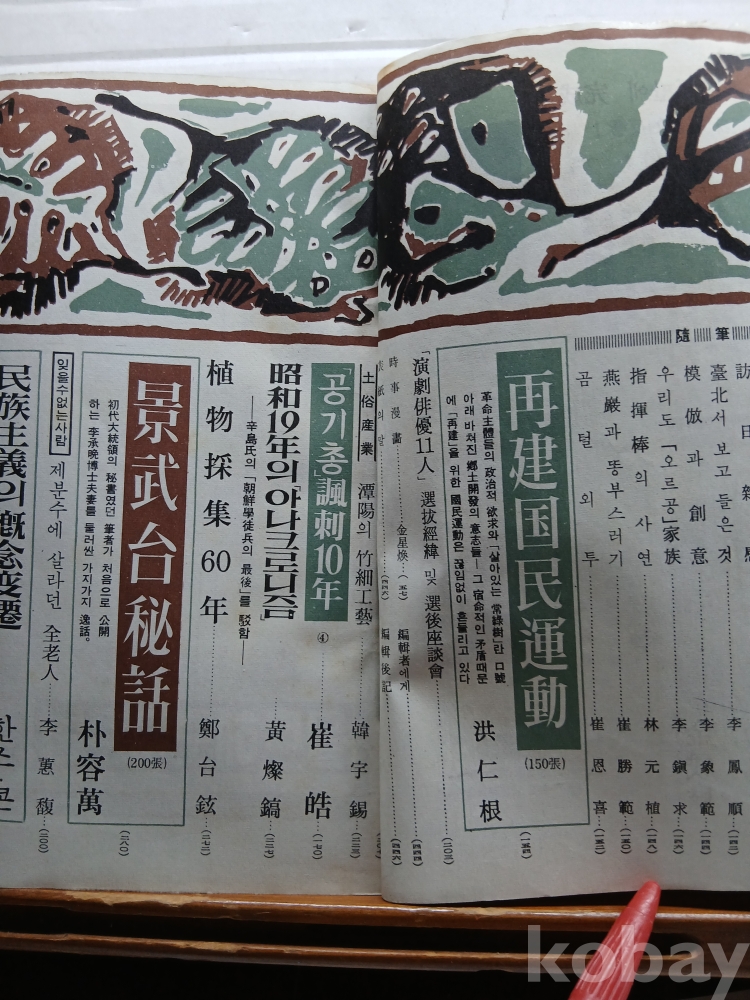 隨筆
訪日雜感 李鳳順
臺北서 보고 들은 것 李象範
模倣과 創意 李象範
우리도 「오르공」家族 李鎭求
指揮棒의 사연 林元植
燕巖과 똥부스러기 崔勝範
곰털외투 崔恩喜
再建国民運動
(150張)
革命主體들의 政治的 欲求와 「살아있는 常綠樹」란 口號
아래 바쳐진 鄕土開發의 意志들―그 宿命的인 矛盾때문
에 「再建」을 위한 國民運動은 끊임없이 흔들리고 있다
洪仁根
「演劇俳優11人」 選拔經緯 및 選後座談會
時事漫畵 金星煥
編輯者에게
表紙의 말
編輯後記
土俗産業 潭陽의 竹細工藝 韓宇錫
「공기총」諷刺10年 ④ 崔皓
昭和19年의 「아나크로니즘」 黃燦鎬
――辛島氏의 「朝鮮學徒兵의 最後」를 駁함――
植物採集60年 鄭台鉉
景武台秘話
(200張)
初代大統領의 秘書였던 筆者가 처음으로 公開
하는 李承晩博士夫妻를 둘러싼 가지가지 逸話。
朴容萬
잊을수없는사람 제분수에 살라던 全老人 李蕙馥
民族主義의 概念変遷
kobay